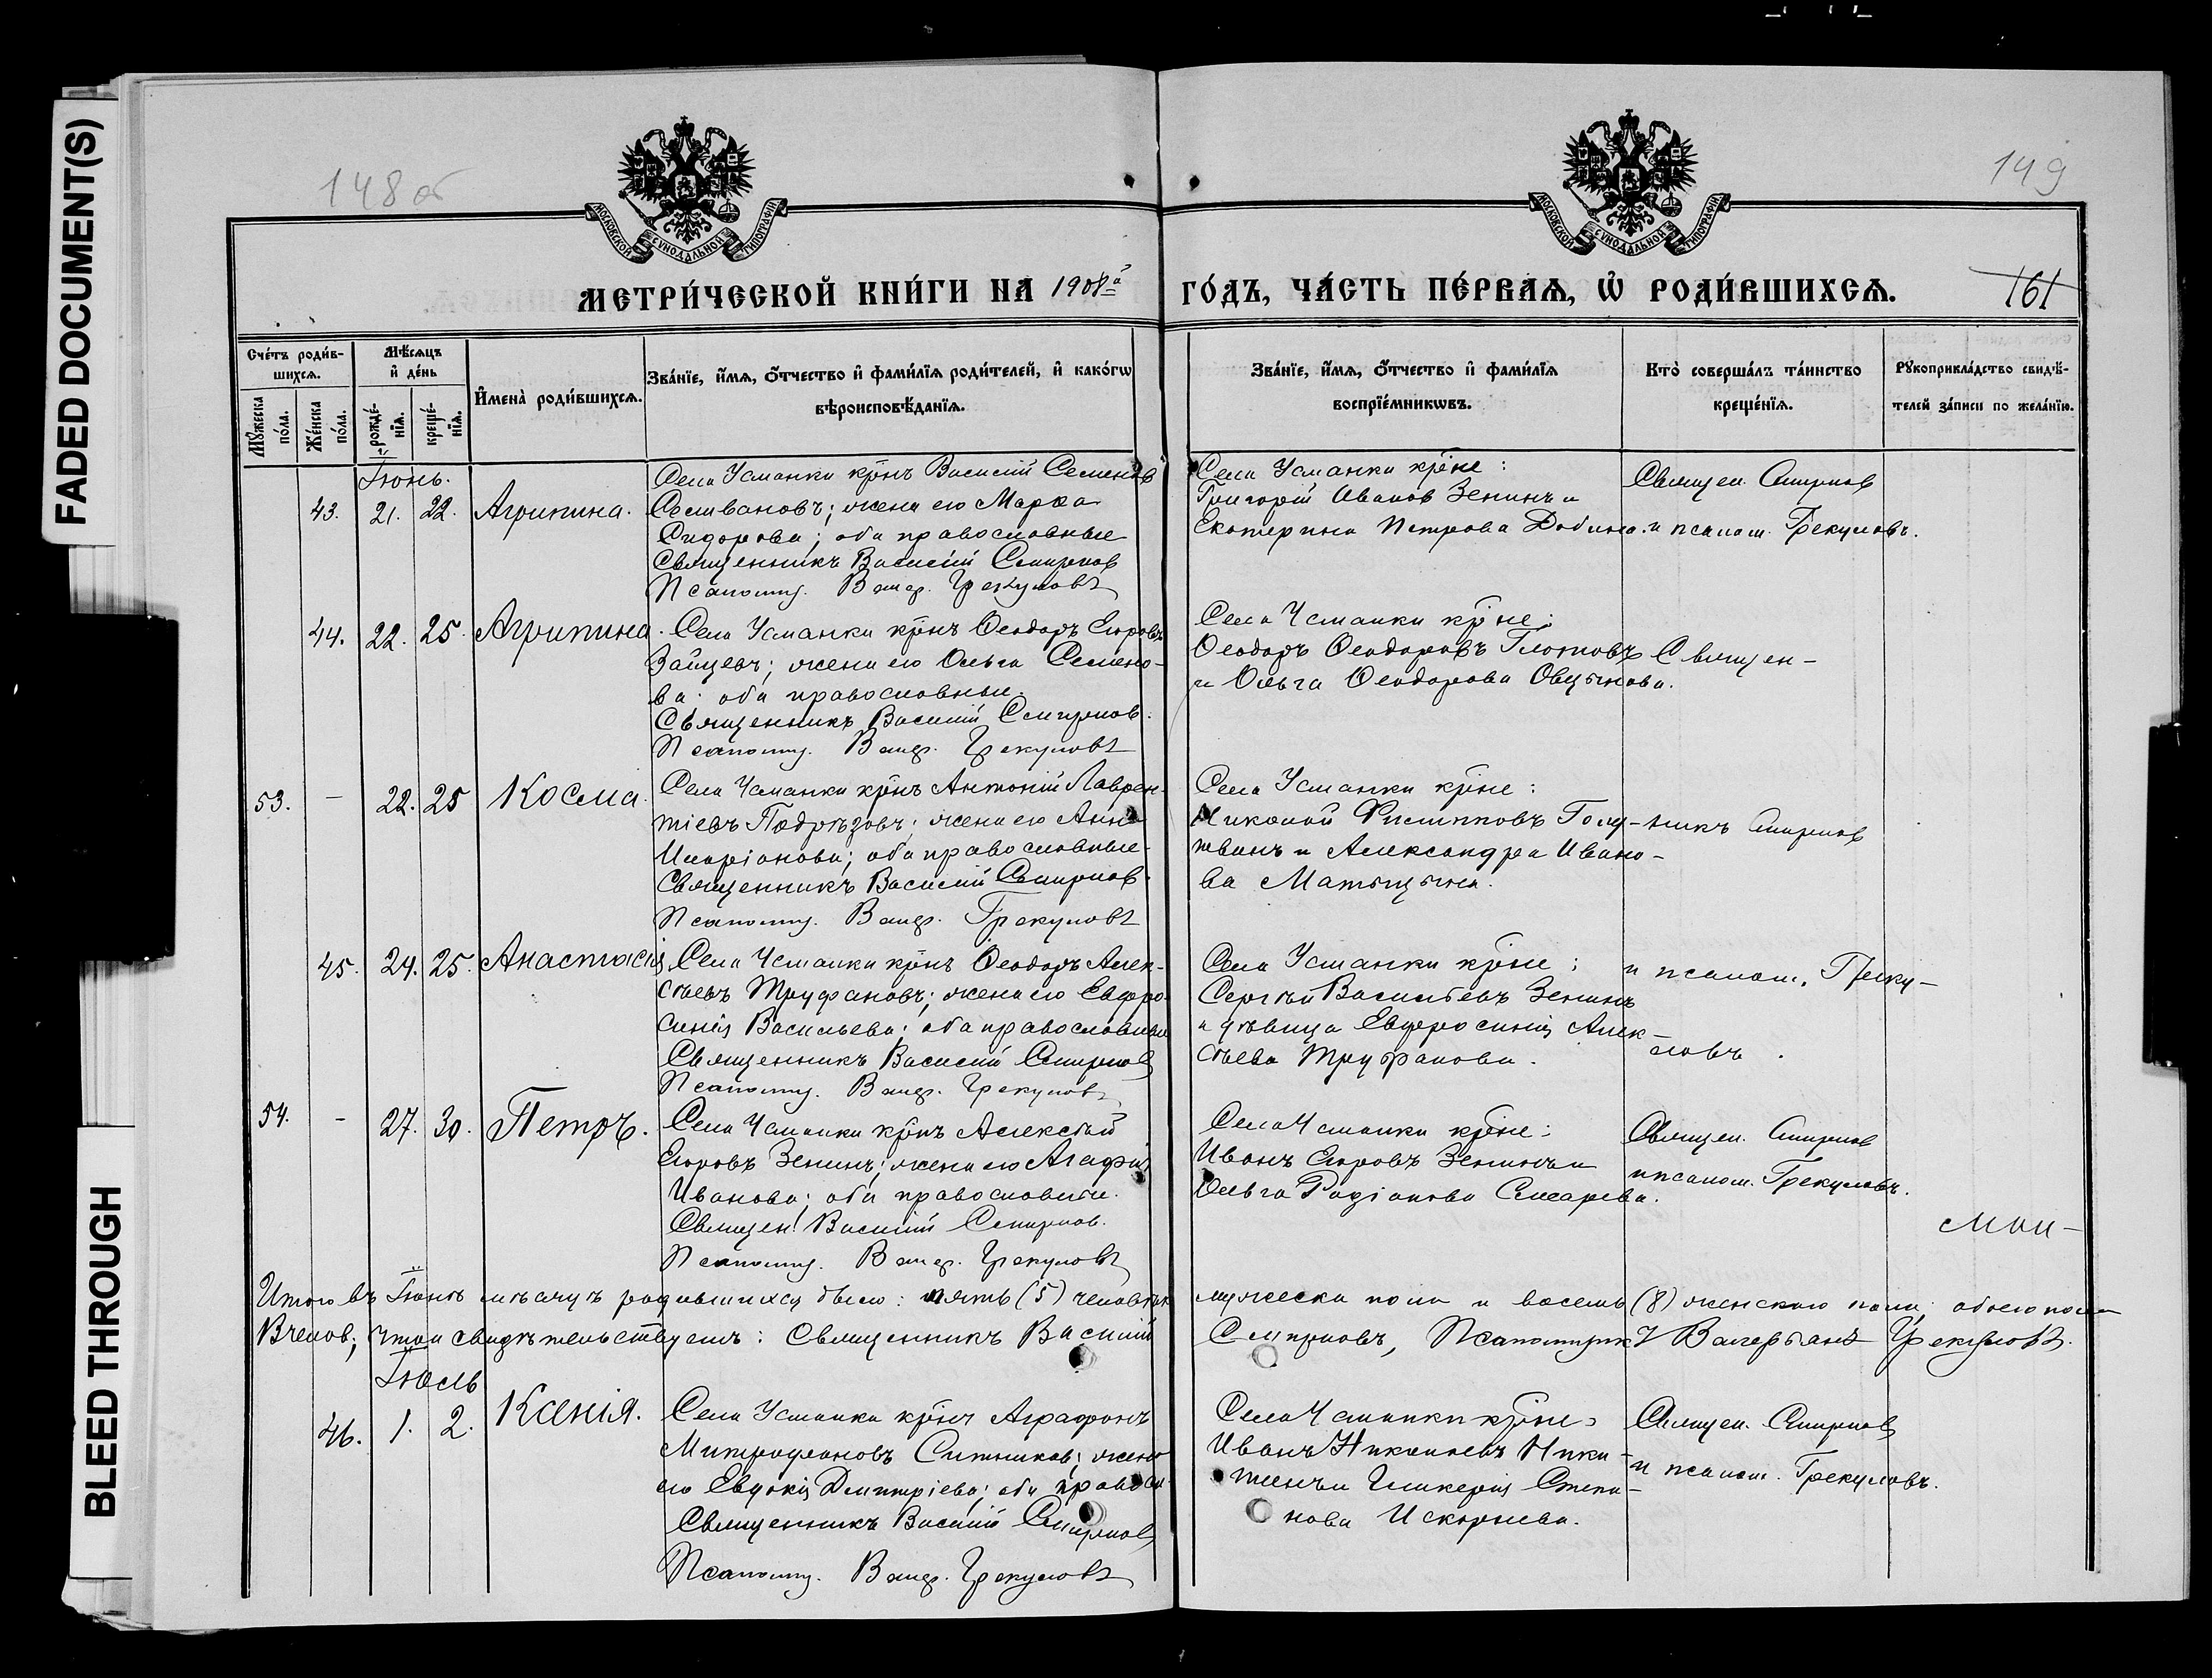 FADED DOCUMENT(S)
BLEED THROUGH
148об
149
161
МОСКОВСКОЙ СѴНОДАЛЬНОЙ ТИПОГРАФІИ
МОСКОВСКОЙ СѴНОДАЛЬНОЙ ТИПОГРАФІИ
МЕТРИ́ЧЕСКОЙ КНИ́ГИ НА 1908й ГО́ДЪ, ЧА́СТЬ ПЕ́РВАѦ, Ѡ҆ РОДИ́ВШИХСѦ.
Сче́тъ роди́в-
шихсѧ.
Мꙋ́жеска по́ла.
Же́нска по́ла.
Мѣ́сѧцъ
и҆ де́нь
рожде́-
нїѧ.
креще́-
нїѧ.
И҆мена̀ роди́вшихсѧ.
Зва́нїе, и҆́мѧ, ѻ҆́тчество и҆ фами́лїѧ роди́телей, и҆ како́гѡ
вѣроисповѣ́данїѧ.
Зва́нїе, и҆́мѧ, ѻ҆́тчество и҆ фами́лїѧ
воспрїе́мникѡвъ.
Кто̀ соверша́лъ та́инство
креще́нїѧ.
Рꙋкоприкла́дство свидѣ́-
телей за́писи по жела́нїю.
Іюнь.
43. 21. 22. Агрипина.
Села Усманки крнъ Василій Семеновъ
Селивановъ; жена его Марѳа
Сидорова; оба православные
Священникъ Василій Смирнов
Псаломщ. Валер. Грекуловъ
Села Усманки кр҃не:
Григорій Иванов Зенинъ и
Екатерина Петрова Добина.
Священ. Смирнов
и псалом. Грекуловъ.
44. 22. 25. Агрипина.
Села Усманки крнъ Ѳеодоръ Егоровъ
Зайцевъ; жена его Ольга Семено-
ва; оба православные.
Священникъ Василій Смирнов.
Псаломщ. Валер. Грекуловъ
Села Усманки кр҃не:
Ѳеодоръ Ѳеодоровъ Глотовъ
и Ольга Ѳеодорова Овцынова.
Священ-
53. - 22. 25 Косма.
Села Усманки крнъ Антоній Лаврен-
тіевъ Подрѣзовъ; жена его Анна
Иларіонова; оба православные.
Священникъ Василій Смирнов.
Псаломщ. Валер. Грекуловъ
Села Усманки кр҃не:
Николай Филипповъ Голу-
твинъ и Александра Ивано-
ва Матыцына.
никъ Смирнов
45. 24. 25. Анастасія
Села Усманки крнъ Ѳеодоръ Алек-
сѣевъ Труфановъ; жена его Евфро-
синія Васильева; оба православные
Священникъ Василій Смирнов
Псаломщ. Валер. Грекуловъ
Села Усманки кр҃не:
Сергѣй Васильевъ Зенинъ
и дѣвица Евфросинія Алек-
сѣева Труфанова.
и псалом. Греку-
ловъ.
54. - 27. 30. Петръ.
Села Усманки крнъ Алексѣй
Егоровъ Зенинъ; жена его Агафія
Иванова; оба православные.
Священ. Василій Смирнов.
Псаломщ. Валер. Грекуловъ
Села Усманки кр҃не:
Иванъ Егоровъ Зенинъ и
Ольга Родіонова Слесарева.
Священ. Смирнов
и псалом. Грекуловъ.
Итого въ Іюнѣ мѣсяцѣ родившихся было: пять (5) человѣкъ мужеска пола и восемь (8) женскаго пола; обоего пола
13 челов; что и свидѣтельствуемъ: Священникъ Василій Смирновъ, Псаломщикъ Валерьянъ Грекуловъ.
Іюль
46. 1. 2. Ксенія.
Села Усманки крнъ
Митрофановъ Ситников; жена
его Евдокія Димитріева; оба правосл.
Священникъ Василій Смирнов
Псаломщ. Валер. Грекуловъ
Села Усманки кр҃не:
Иванъ Николаевъ Ники-
тинъ и Гликерія Степа-
нова Искорнева.
Священ. Смирнов
и псалом. Грекуловъ.